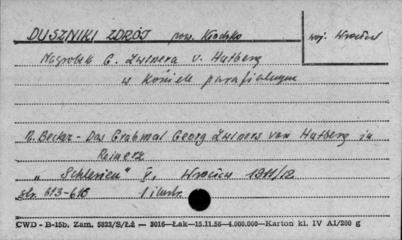 DUSZNIKI ZDRÓJ pow. Kłodzko woj. Wrocław
Nagrobek G. Zwinera v. Hatberg
w kościele parafialnym
R. Becker - Das Grabmal Georg Zwiners von Hatberg in
Reinerz
„Schlesien" V. Wrocław 1911/12
str. 613-616 1 ilustr.
CWD - B-15b. Zam. 5822/S/Łź — 3016—Łak—15.11.56—4.000.000—Karton kl. IV A1/200 g